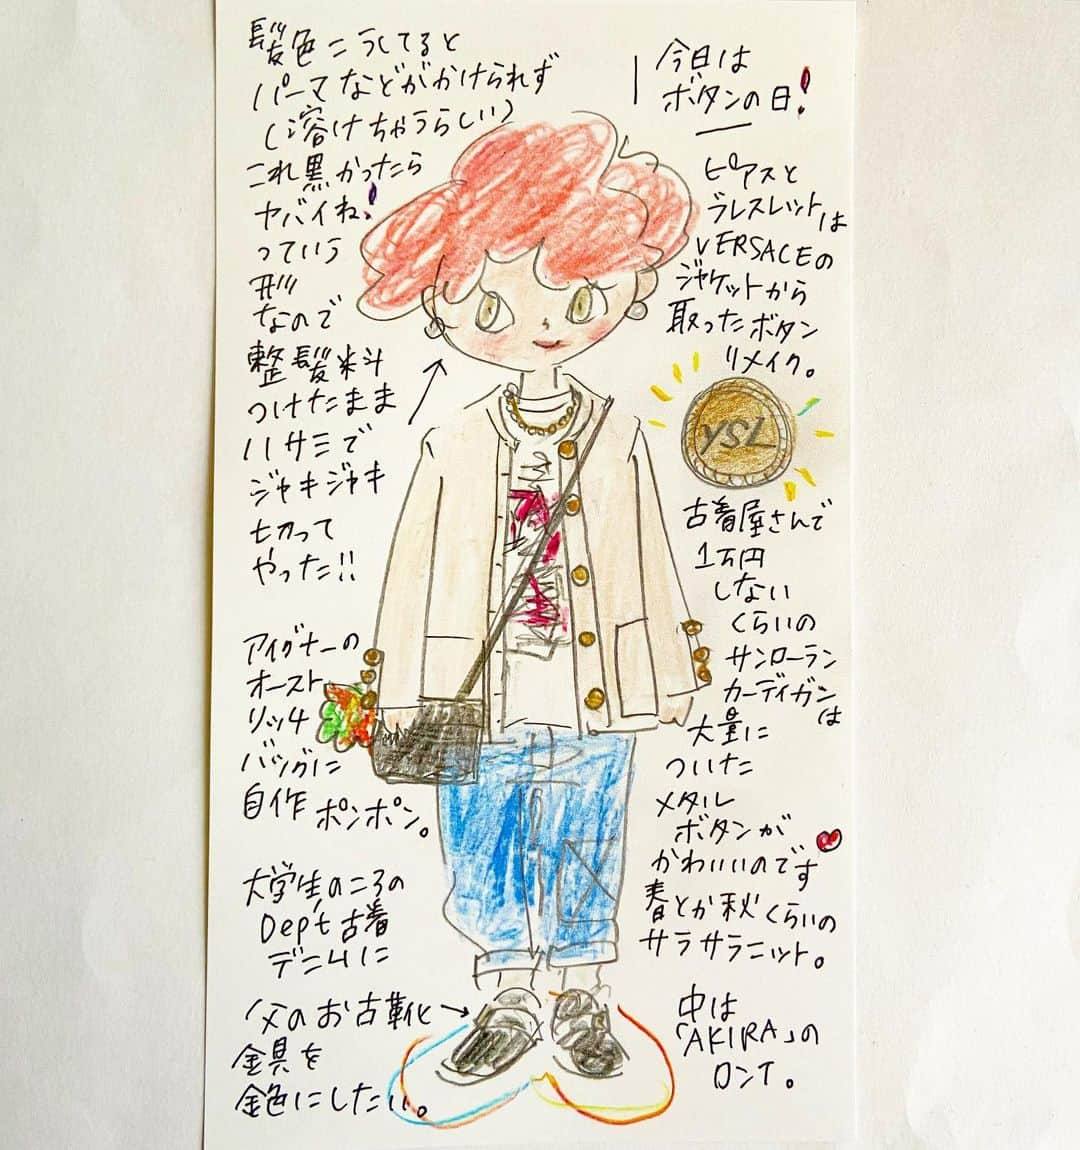 髪色こうしてると
パーマなどがかけられず
(溶けちゃうらしい)
これ黒かったら
ヤバイね!
っていう
形
なので
整髪料
つけたまま
ハサミで
ジャキジャキ
切って
やった!!
アイグナーの
オースト
リッチ
バッグに
自作ポンポン。
大学生のころの
Dep't古着
デニムに
父のお古靴→
金具を
金色にしたい。
今日は
ボタンの日!
ピアスと
ブレスレットは
VERSACEの
ジャケットから
取ったボタン
リメイク。
YSL
古着屋さんで
1万円
しない
くらいの
サンローラン
カーディガンは
大量に
ついた
メタル
ボタンが
かわいいのです
春とか秋くらいの
サラサラニット。
中は
「AKIRA」の
ロンT。